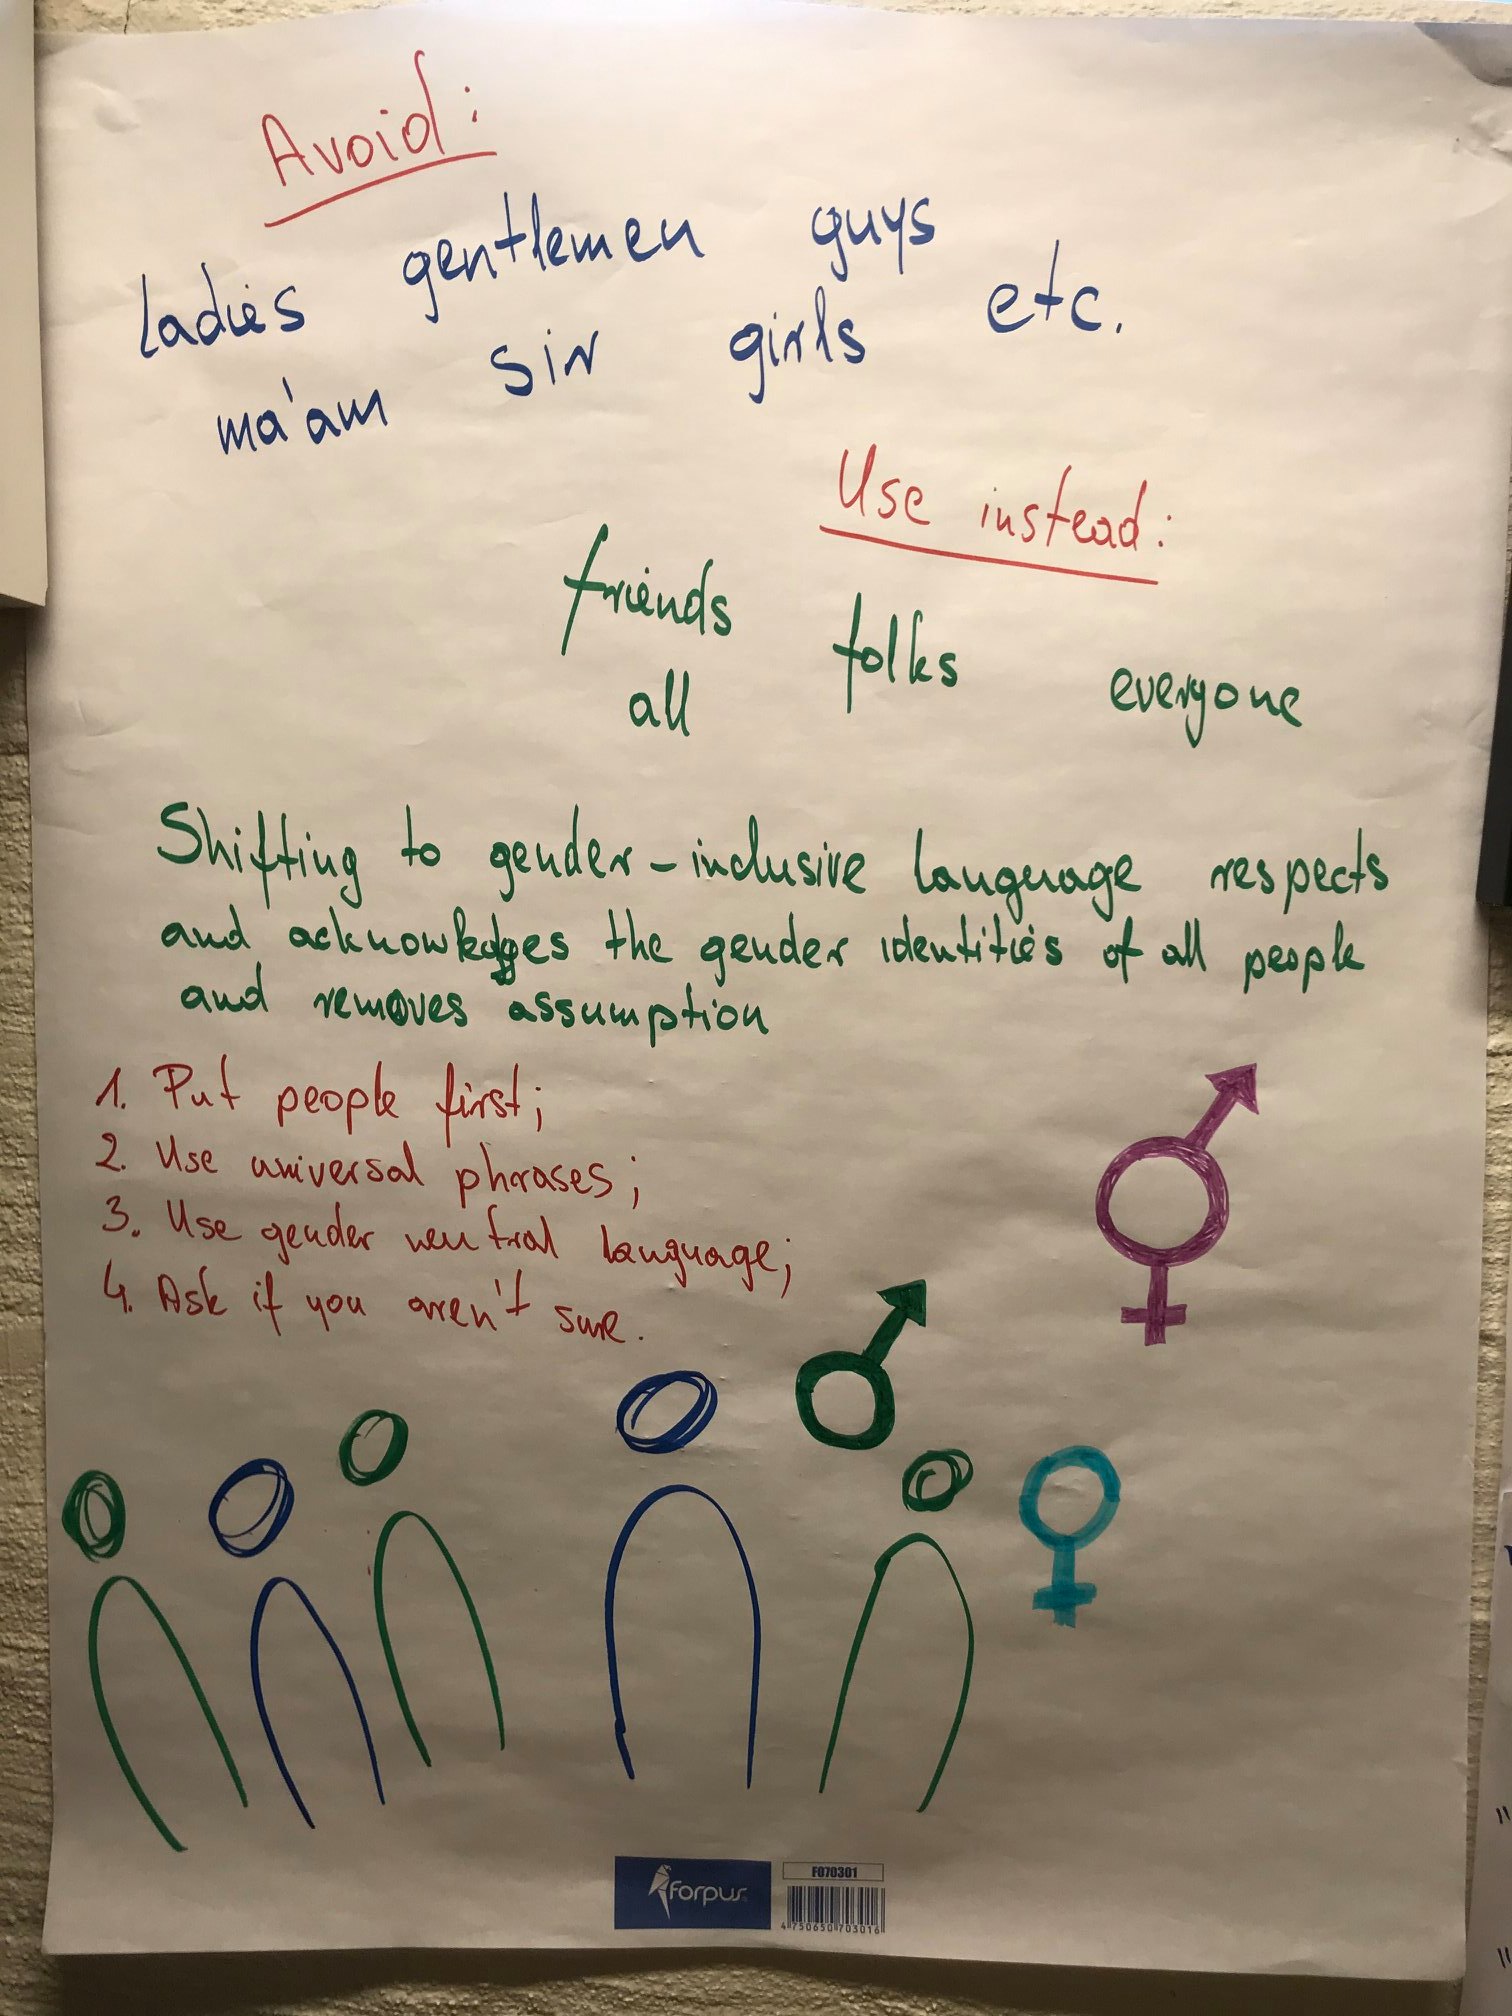 Avoid:
ladies gentlemen guys
ma'am sir girls etc.
Use instead:
friends folks everyone
all
Shifting to gender-inclusive language respects
and acknowledges the gender identities of all people
and removes assumption
1. Put people first;
2. Use universal phrases;
3. Use gender neutral language;
4. Ask if you aren't sure.
forpus
F070301
4 750650 703016